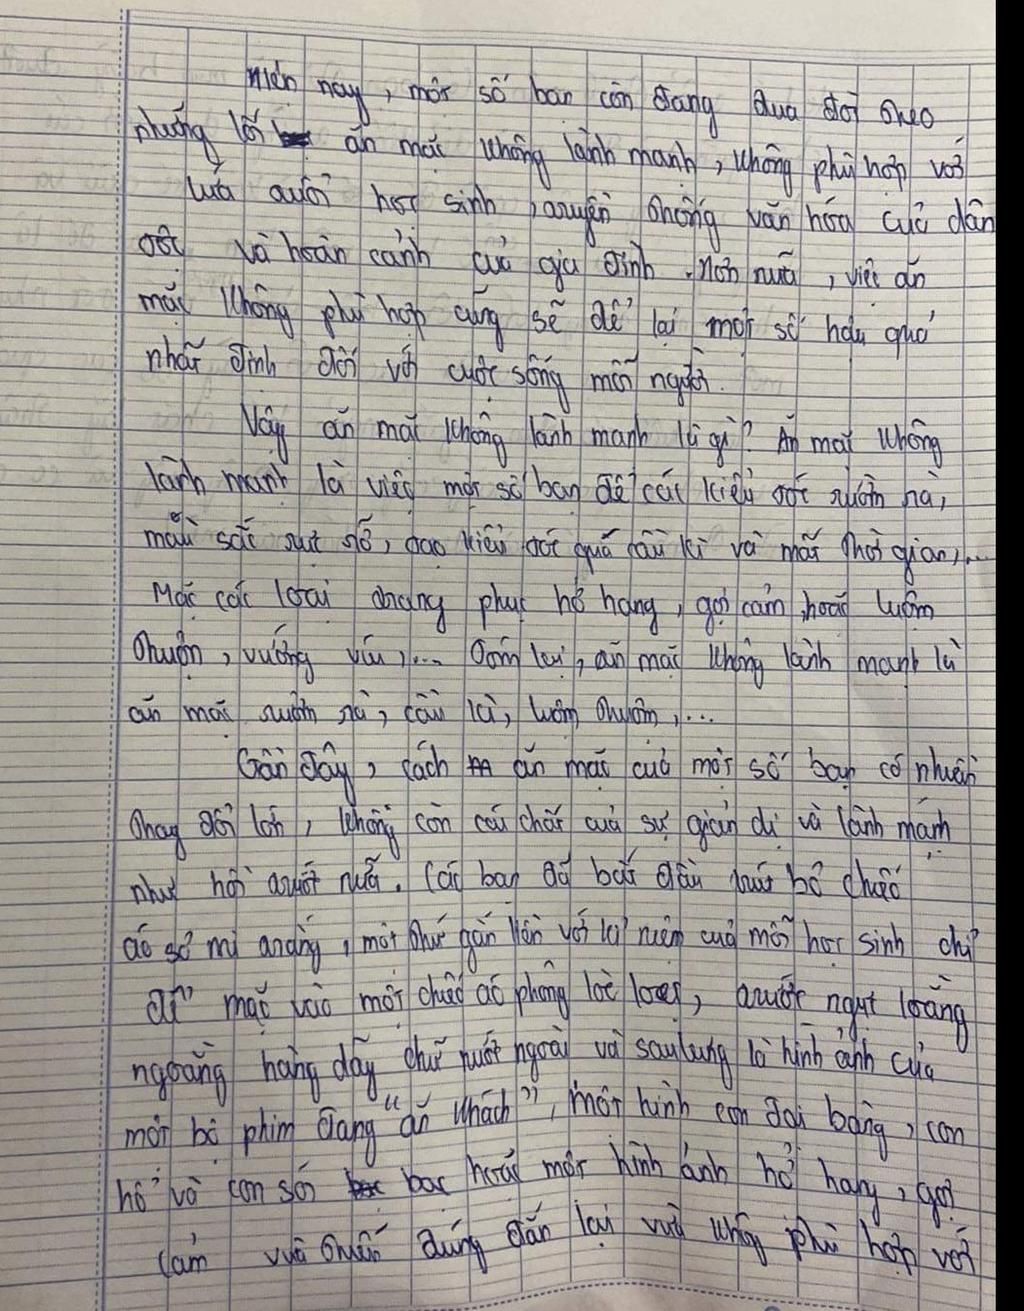 Hiện nay, một số bạn còn đang đua đòi theo
những lối ăn mặc không lành mạnh, không phù hợp với
lứa tuổi học sinh, truyền thống văn hóa của dân
tộc và hoàn cảnh của gia đình. Hơn nữa, việc ăn
mặc không phù hợp cũng sẽ để lại một số hậu quả
nhất định đối với cuộc sống mỗi người.
Vậy ăn mặc không lành mạnh là gì? Ăn mặc không
lành mạnh là việc một số bạn để các kiểu tóc rườm rà,
màu sắc sặc sỡ, tạo kiểu tóc quá cầu kì và mất thời gian,...
Mặc các loại trang phục hở hang, gợi cảm hoặc luộm
thuộm, vướng víu,... Tóm lại, ăn mặc không lành mạnh là
ăn mặc rườm rà, cầu kì, luộm thuộm,...
Gần đây, cách ăn mặc của một số bạn có nhiều
thay đổi lớn, không còn cái chất của sự giản dị và lành mạnh
như hồi trước nữa. Các bạn đã bắt đầu trút bỏ chiếc
áo sơ mi trắng, một thứ gắn liền với kỉ niệm của mỗi học sinh chỉ
để mặc vào một chiếc áo phông loè loẹt, trước ngực loằng
ngoằng hàng dãy chữ nước ngoài và sau lưng là hình ảnh của
một bộ phim đang "ăn khách", một hình con đại bàng, con
hổ và con sói bạc hoặc một hình ảnh hở hang, gợi
cảm vừa thiếu đứng đắn lại vừa không phù hợp với